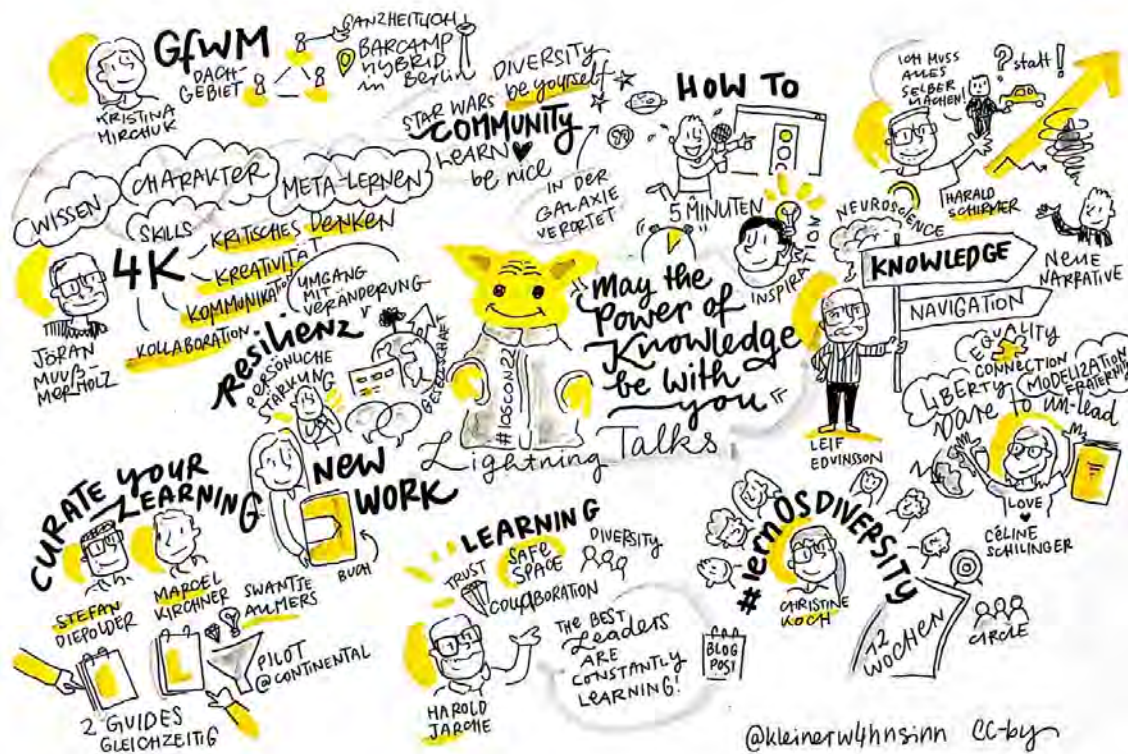 GfWM
DACH-
GEBIET
GANZHEITLICH
BARCAMP
HYBRID
in Berlin
KRISTINA
MIRCHUK
DIVERSITY
be yourself
STAR WARS
COMMUNITY
LEARN
be nice
IN DER
GALAXIE
VERORTET
HOW TO
5 MINUTEN
INSPIRATION
ICH MUSS
ALLES
SELBER
MACHEN!
? statt !
HARALD
SCHIRMER
NEUE
NARRATIVE
WISSEN
CHARAKTER
META-LERNEN
SKILLS
4K
KRITISCHES DENKEN
KREATIVITÄT
KOMMUNIKATION
KOLLABORATION
JÖRAN
MUUß-
MERHOLZ
UMGANG
MIT
VERÄNDERUNG
Resilienz
PERSÖNLICHE
STÄRKUNG
GESELLSCHAFT
#loscon22
"May the
Power of
Knowledge
be with
you"
Lightning Talks
NEUROSCIENCE
KNOWLEDGE
NAVIGATION
LEIF
EDVINSSON
EQUALITY
CONNECTION
LIBERTY
MODELIZATION
FRATERNITY
Dare to un-lead
LOVE
CÉLINE
SCHILINGER
CURATE YOUR
LEARNING
STEFAN
DIEPOLDER
MARCEL
KIRCHNER
2 GUIDES
GLEICHZEITIG
L
L
SWANTJE
ALLMERS
PILOT
@CONTINENTAL
NEW
WORK
BUCH
LEARNING
TRUST
SAFE
SPACE
DIVERSITY
COLLABORATION
HAROLD
JARCHE
THE BEST
Leaders
ARE
CONSTANTLY
LEARNING!
#lernOSDIVERSITY
CHRISTINE
KOCH
BLOG
POST
12
WOCHEN
CIRCLE
@kleinerw4hnsinn CC-by